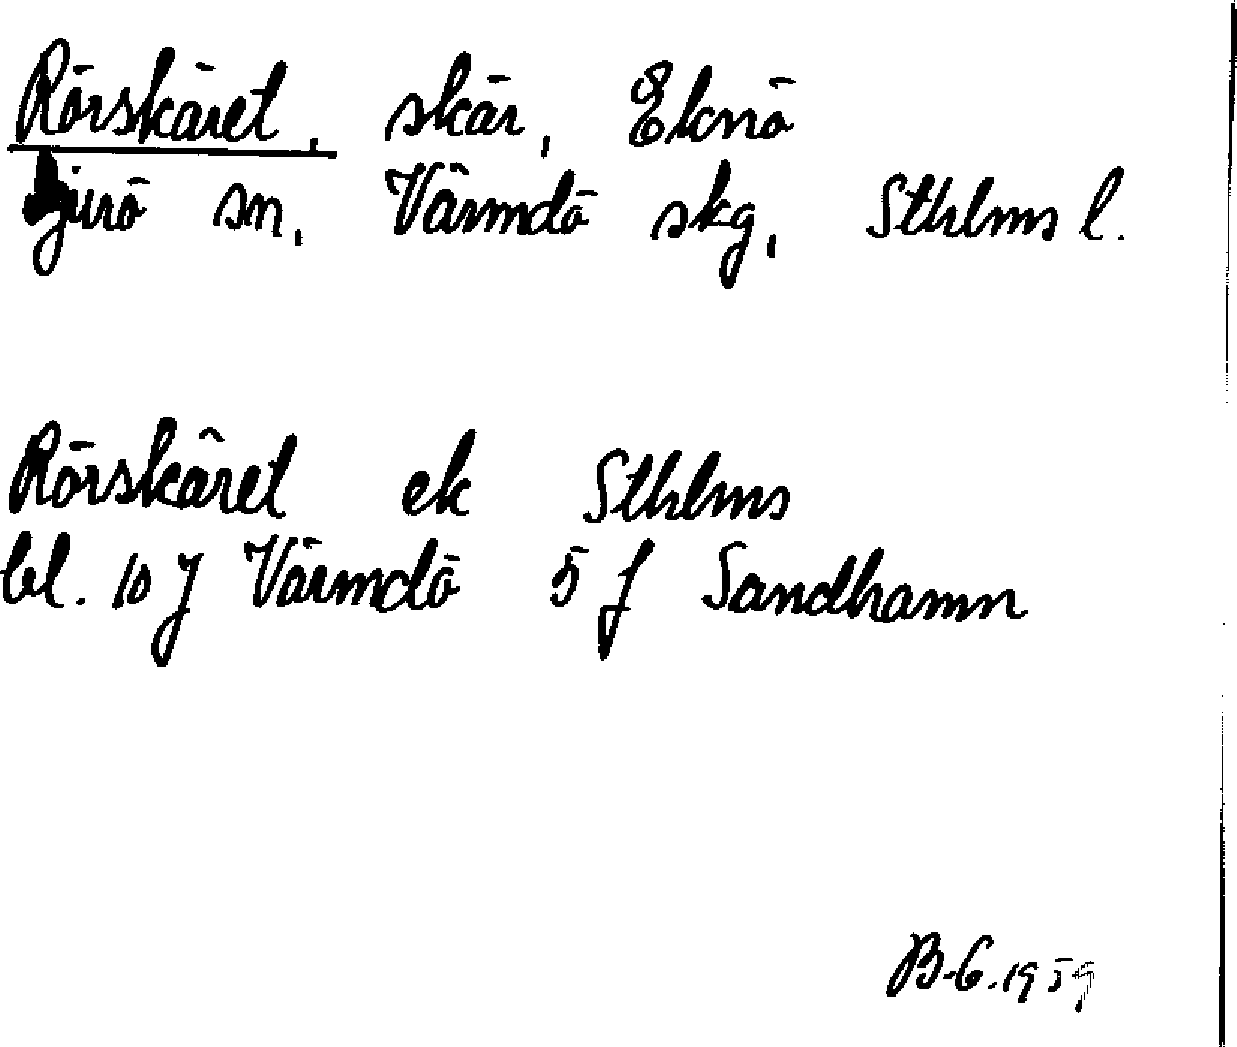 Rörskäret, skär, Eknö
Djurö sn, Värmdö skg, Sthlms l.
Rörskäret ek Sthlms
bl. 10 J Värmdö 5 f Sandhamn
B-G. 1959